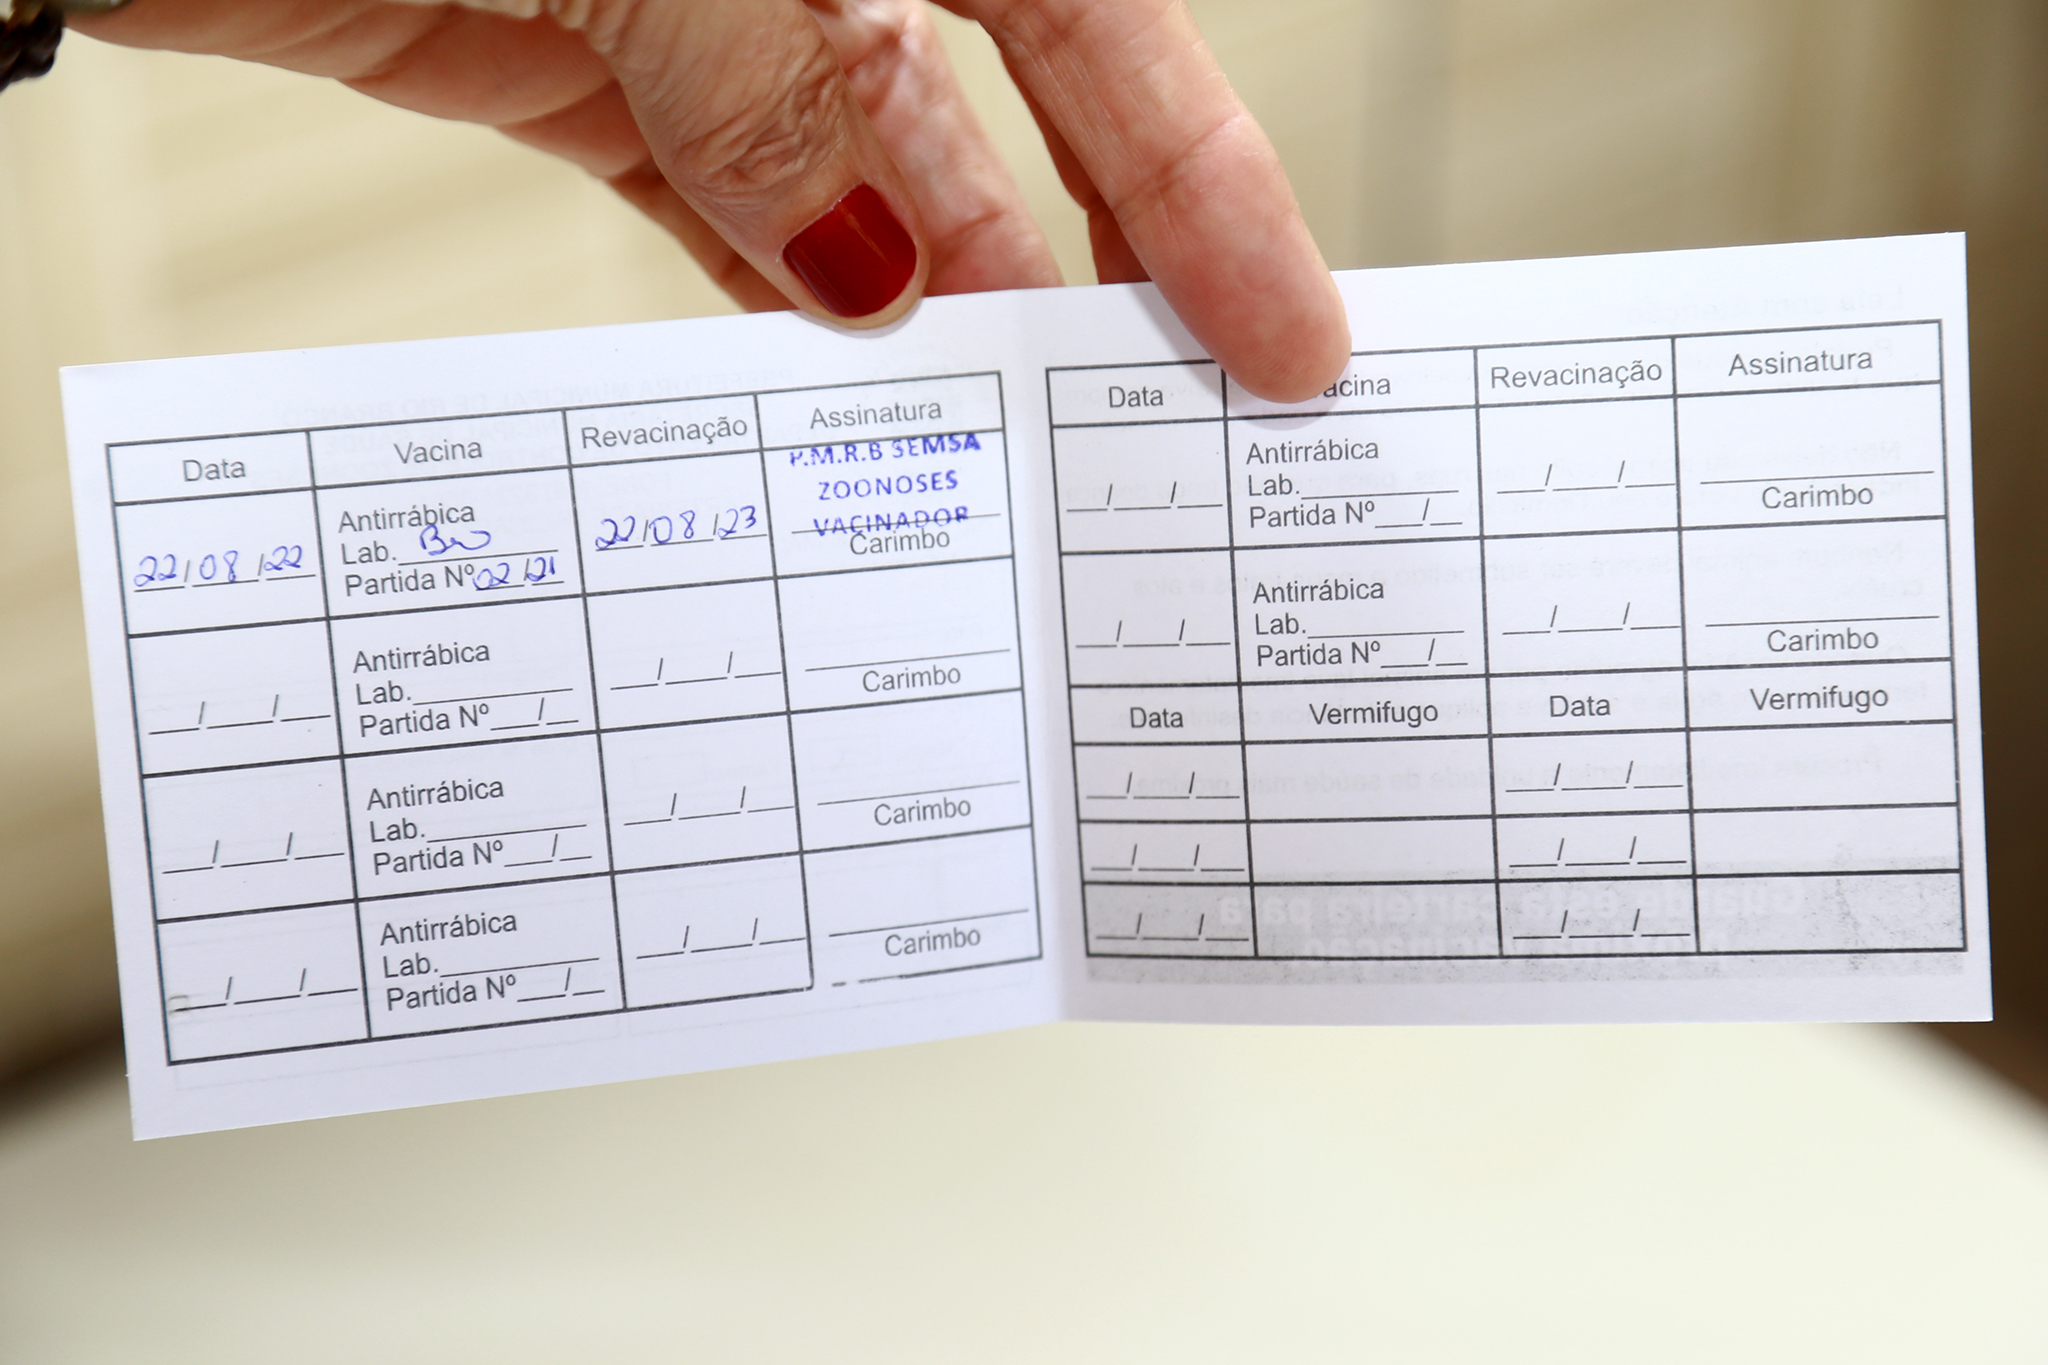 Data Vacina Revacinação Assinatura
22/08/22 Antirrábica 22/08/23 P.M.R.B SEMSA
ZOONOSES
Lab. VACINADOR
Partida Nº 02/21 Carimbo
__/__/__ Antirrábica __/__/__
Lab.
Partida Nº__/__ Carimbo
__/__/__ Antirrábica __/__/__
Lab.
Partida Nº__/__ Carimbo
__/__/__ Antirrábica __/__/__
Lab.
Partida Nº__/__ Carimbo
Data acina Revacinação Assinatura
__/__/__ Antirrábica __/__/__
Lab.
Partida Nº__/__ Carimbo
__/__/__ Antirrábica __/__/__
Lab.
Partida Nº__/__ Carimbo
Data Vermifugo Data Vermifugo
__/__/__ __/__/__
__/__/__ __/__/__
__/__/__ __/__/__